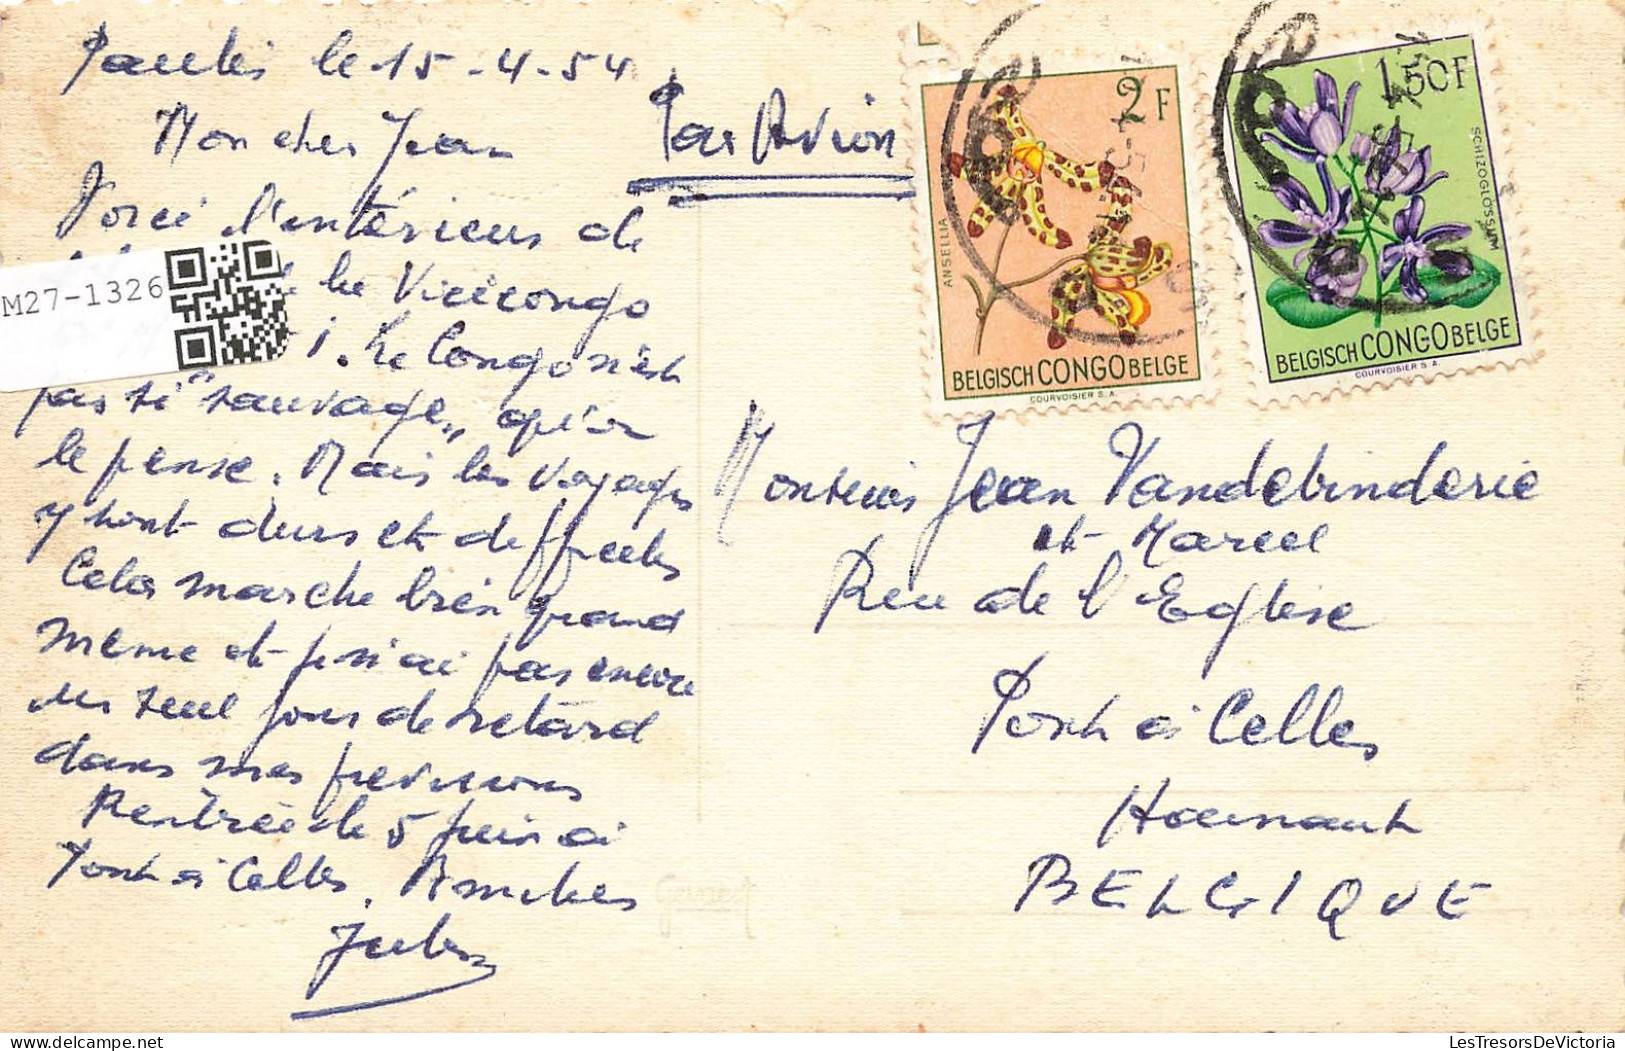 Paulis le 15-4-54
Mon cher Jean
Par Avion
Voici l'intérieur de
le Vicicongo
Le Congo n'est
pas si "sauvage" qu'on
le pense. Mais les voyages
y sont durs et difficiles
Cela marche bien quand
même et je n'ai pas encore
un seul jour de retard
dans mes prévisions
Rentrée le 5 juin à
Pont à Celles. Amitiés
Jules
M27-1326
2F
ANSELLIA
BELGISCH CONGO BELGE
COURVOISIER S.A.
1,50F
SCHIZOGLOSSUM
BELGISCH CONGO BELGE
COURVOISIER S.A.
Monsieur Jean Vandebinderie
et Marcel
Rue de l'Eglise
Pont à Celles
Hainaut
BELGIQUE
Gevaert
LesTresorsDeVictoria.com